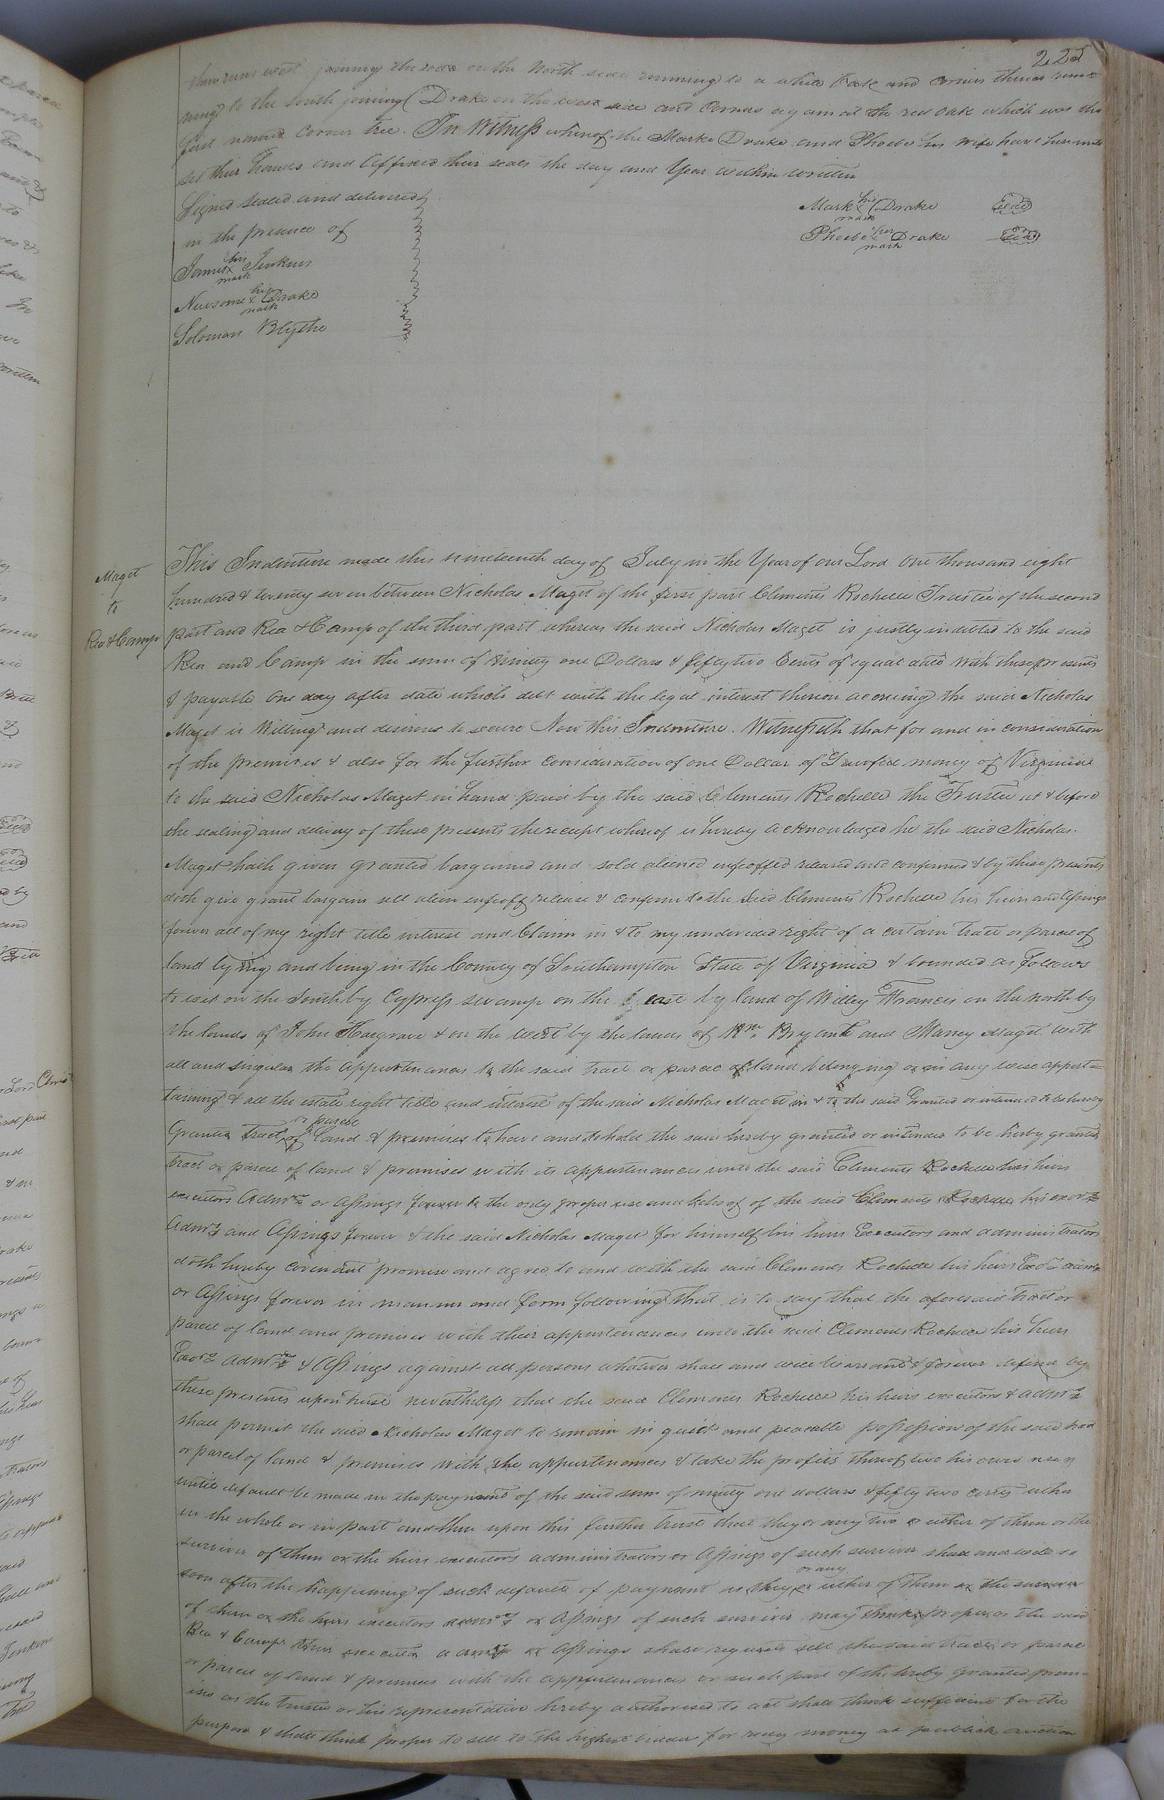 225
then runs west joining the road on the North side running to a white Oak and corner thence runn
ning to the South joining Drake on the west side and corners again at the red oak which was the
first named corner tree. In Witness whereof the Marke Drake and Phoebe his wife have hereunto
set their hands and affixed their seals the day and Year within written
Signed sealed and delivered
in the presence of
James his mark Jenkins
Newsome his mark Drake
Soloman Blythe
Mark his mark Drake Seal
Phoebe her mark Drake Seal
Maget
to
Rea & Camp
This Indenture made this nineteenth day of July in the Year of our Lord One thousand eight
hundred & twenty seven between Nicholas Maget of the first part Clements Rochelle Trustee of the second
part and Rea & Camp of the third part whereas the said Nicholas Maget is justly indebted to the said
Rea and Camp in the sum of ninety one Dollars & fifty two Cents of equal date with these presents
& payable one day after date which debt with the legal interest thereon accruing the said Nicholas
Maget is Willing and desirous to secure Now this Indenture Witnesseth that for and in consideration
of the premises & also for the further consideration of one Dollar of Lawfull money of Virginia
to the said Nicholas Maget in hand paid by the said Clements Rochelle the Trustee at & before
the sealing and delivery of these presents the receipt whereof is hereby acknowledged he the said Nicholas
Maget hath given granted bargained and sold aliened enfeoffed released and confirmed & by these presents
doth give grant bargain sell alien enfeoff release & confirm to the said Clements Rochelle his heirs and assings
forever all of my right title interest and Claim in & to my undivided right of a certain tract or parcel of
land lying and being in the County of Southampton State of Virginia & bounded as follows
to wit on the South by Cypress swamp on the east by land of Willey Francis on the north by
the lands of John Hargrave & on the west by the lands of Wm Bryant and Maney Maget with
all and singular the appurtenances to the said tract or parcel of land belonging or in any wise appert=
taining & all the estate right title and interest of the said Nicholas Maget in & to the said Granted or intended to be hereby
Granted tract or parcel of land & premises to have and to hold the said hereby granted or intended to be hereby granted
tract or parcel of land & premises with its appurtenances unto the said Clements Rochelle his heirs
executors Admrs or assings forever to the only proper use and behoof of the said Clements Rochelle his exors
Admrs and assings forever & the said Nicholas Maget for himself his heirs Executors and administrators
doth hereby covenant promise and agree to and with the said Clements Rochelle his heirs Exors admrs
or assings forever in manner and form following that is to say that the aforesaid tract or
parcel of land and premises with their appurtenances unto the said Clements Rochelle his heirs
Exors Admrs & assings against all persons whatever shall and will warrant & forever defend by
these presents upon trust nevertheless that the said Clements Rochelle his heirs executors & admrs
shall permit the said Nicholas Maget to remain in quiet and peacable possession of the said tract
or parcel of land & premises with the appurtenances & take the profits thereof two his own use
until default be made in the payment of the said sum of ninety one dollars & fifty two cents either
in the whole or in part and then upon this further trust that they or any two or either of them or the
survivor of them or the heirs executors administrators or assings of such survivor shall and will so
soon after the happening of such default of payment as they or any or either of them or the survivor
of them or the heirs executors admrs or assings of such survivor may think proper or the said
Rea & Camp their executors admrs or assings shall request sell the said tract or parcel
or parcel of land & premises with the appurtenances or such part of the hereby granted prem=
ises as the trustee or his representative hereby authorised to act shall think sufficient for the
purpose & shall think proper to sell to the highest bidder for redy money at publick auction